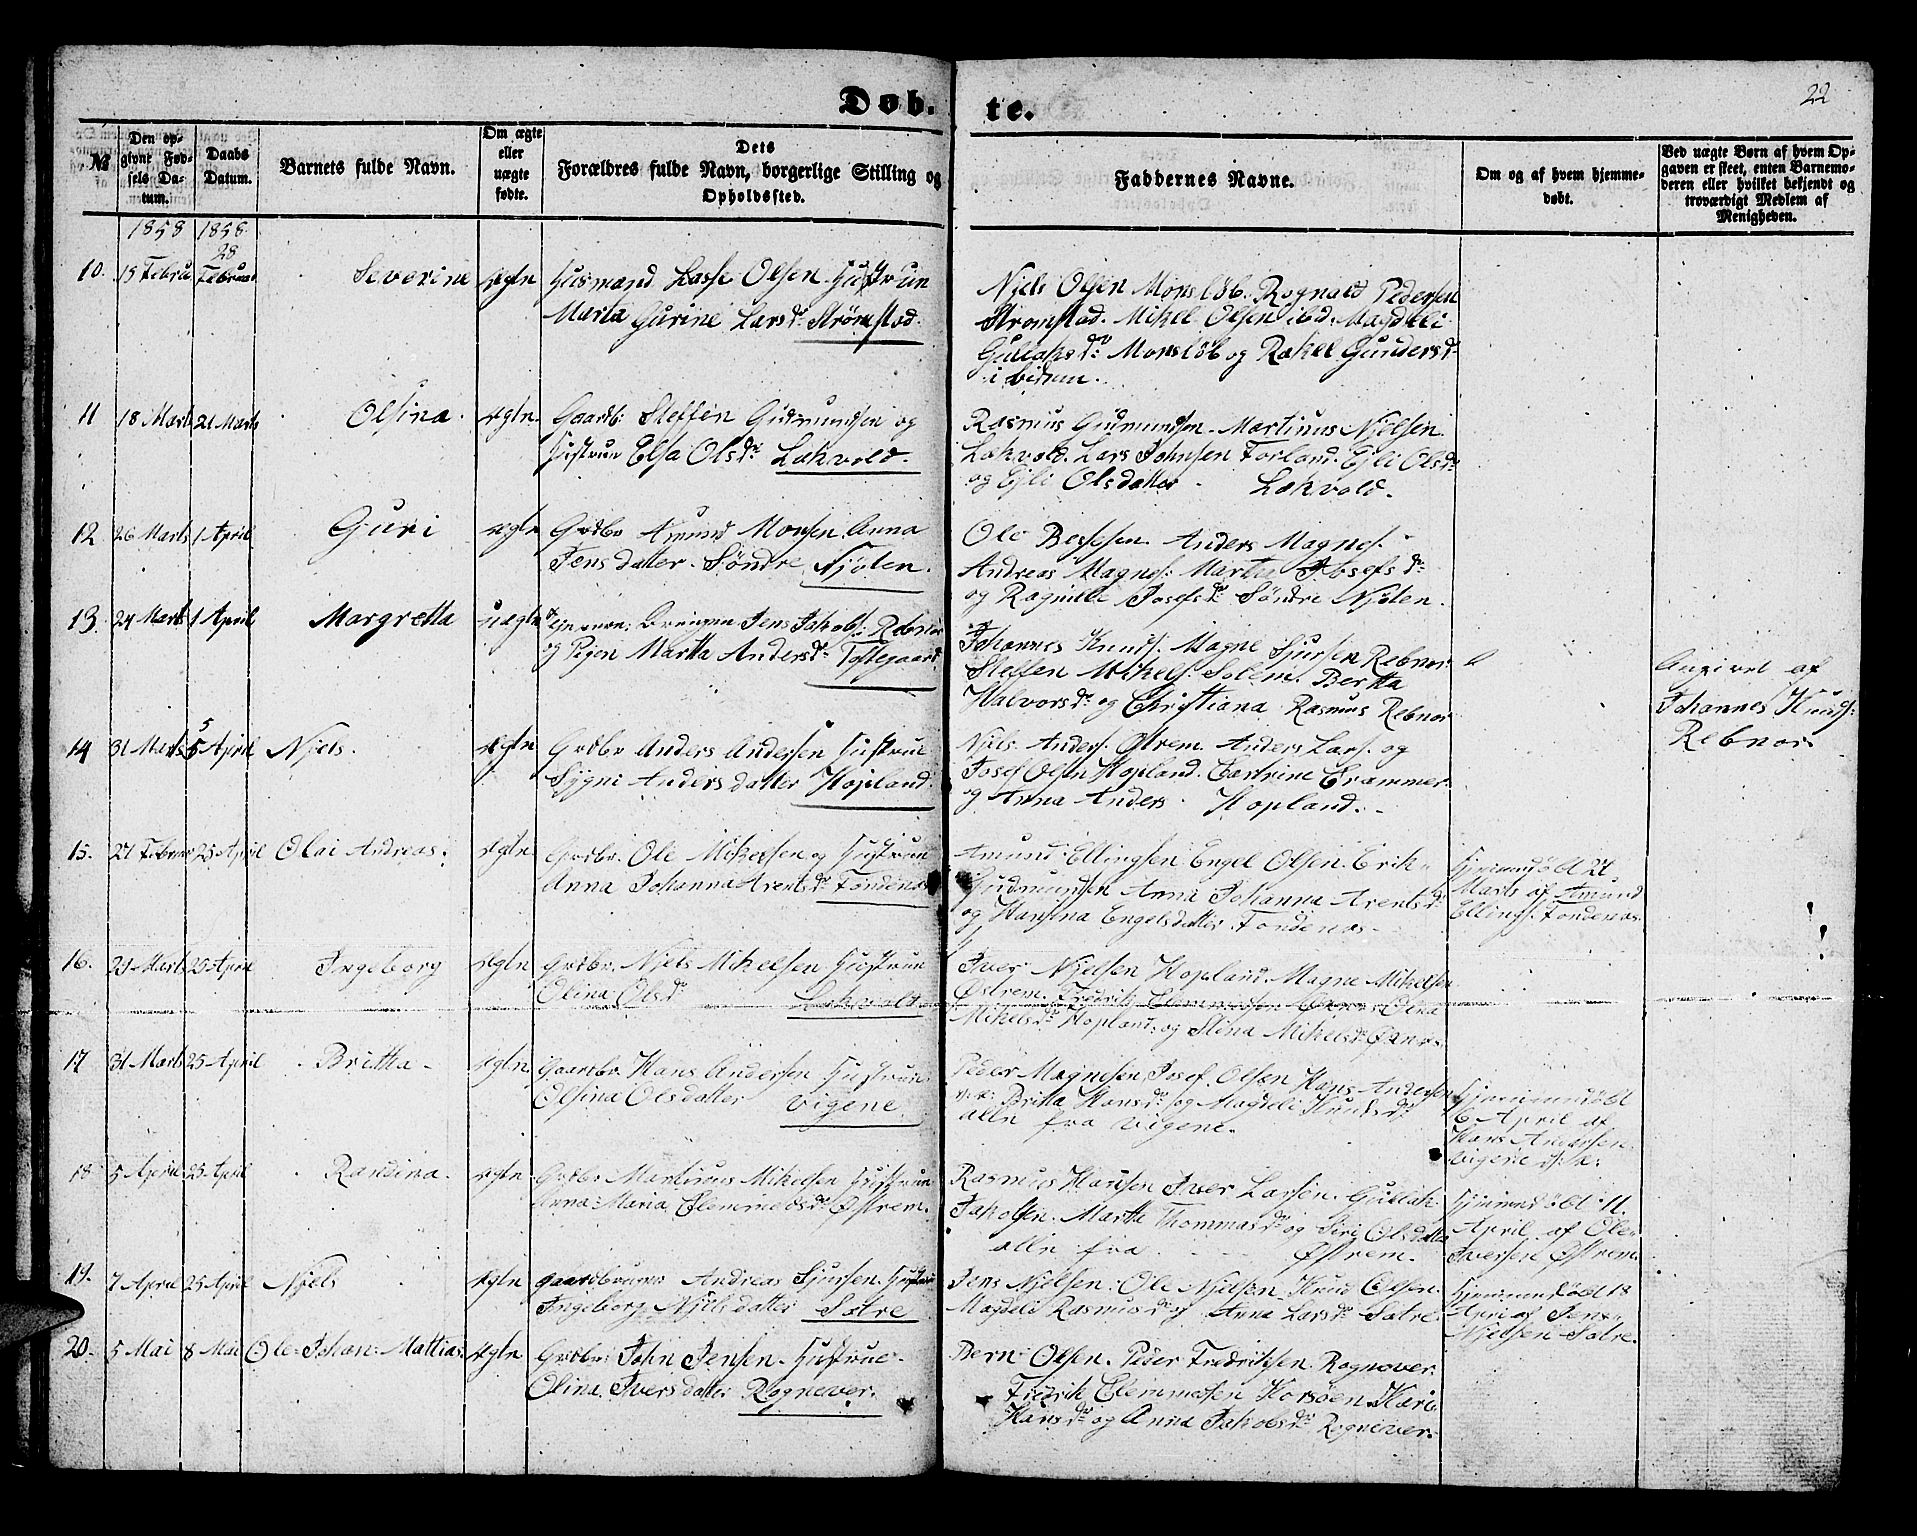 Døb. te.
22
№
Den op-
givne Fød-
sels Da-
tum.
Daabs
Datum.
Barnets fulde Navn.
Om ægte
eller
uægte
fødte.
Dets
Forældres fulde Navn, borgerlige Stilling og
Opholdssted.
Faddernes Navne.
Om og af hvem hjemme-
døbt.
Ved uægte Børn af hvem Op-
gaven er skeet, enten Barnemo-
deren eller hvilket bekjendt og
troværdigt Medlem af
Menigheden.
1858 1858
28
10. 15 Februar Februar Severine ægte Husmand Lasse Olsen Hustrun
Marta Gurine Larsdr Strømstad.
Njels Olsen Monsløb. Rognald Pedersen
Strømstad. Mikel Olsen ibid. Magdeli
Gullaksdr Monsløb og Rakel Gundersdr
ibidem.
11 18 Marts 21 Marts Olsina ægte Gaardb: Steffen Gudmundsen og
Hustrue Elsa Olsdr Løkvold.
Rasmus Gudmundsen. Martinus Njelsen
Løkvold. Lars Johnsen Forland. Ejli Olsdr
og Ejli Olsdatter Løkvold.
12 26 Marts 1 April Guri ægte Grdbr Amund Monsen Anna
Jensdatter Søndre Njøten.
Ole Bessesen Anders Magnes.
Andreas Magnes: Marta Josefsdr
og Rognilde Josefsdr Søndre Njøten.
13. 24 Marts 1 April Margretta uægte Jens Jakobs: Rebnor
og Pigen Marta Andersdr Toftegaard
Johannes Knuds. Magne Sjursen Rebnor
Steffen Mikels: Solem. Bertta
Halvorsdr og Christiana Rasmus Rebnor
Angivet af
Johannes Knuds:
Rebnor
14 31 Marts 5 April Njels. ægte Grdbr Anders Andersen Hustrue
Sygni Andersdatter Hopland.
Njels Anders. Østrem Anders Lars. og
Josef Olsen Hopland.
og Anna Anders. Hopland.
15. 27 Februar 25 April Olai Andreas. ægte Grdbr. Ole Mikelsen og Hustrue
Anna Johanna Arentsdr Fondenæs
Amund Ellingsen Engel Olsen. Erik
Gudmundsen Anna Johanna Arentsdr
og Hansina Engelsdatter Fondenæs.
Hjemmedøbt 27
Marts af Amund
Ellings. Fondenæs.
16. 23 Marts 25 April Ingeborg ægte Grdbr. Njels Mikelsen Hustrue
Olina Olsdr Løkvold
Iver Njelsen Hopland. Magne Mikelsen
Østrem. Fredrik Clemmetsen Olina
Mikelsdr Hopland: og Stina Mikelsdr
17 31 Marts 25 April Britha ægte Gaardbr. Hans Andersen Hustrue
Olsina Olsdatter Vigene.
Peder Magnesen, Josef Olsen Hans Andersen
Britta Hansdr og Magdeli Knudsdr
alle fra Vigene.
Hjemmedøbt
6 April af
Hans Andersen
Vigene
18 5 April 25 April Randina. ægte Grdbr Martinus Mikelsen Hustrue
Anna Maria Clemmedsdr Østrem.
Rasmus Hansen Iver Larsen. Gullak
Jakobsen. Martta Thommasdr og Siri Olsdatter
alle fra Østrem.
Hjemmedøbt 11
April af Ole
Iversen Østrem
19. 7 April 25 April Njels ægte gaardbruger Andreas Sjursen Hustrue
Ingeborg Njelsdatter Sætre
Jens Njelsen. Ole Njelsen Knud Olsen.
Magdeli Rasmusdr og Anna Larsdr Sætre.
Hjemmedøbt 18
April af Jens
Njelsen Sætre.
20. 5 Mai 8 Mai Ole Johan Mattias ægte Grdbr: John Jensen. Hustrue
Olina Iversdatter Rognever.
Bern Olsen. Peder Fredriksen. Rognever.
Fredrik Clemmetsen Horsøen Kari
Hansdr og Anna Jakobsdr Rognever.